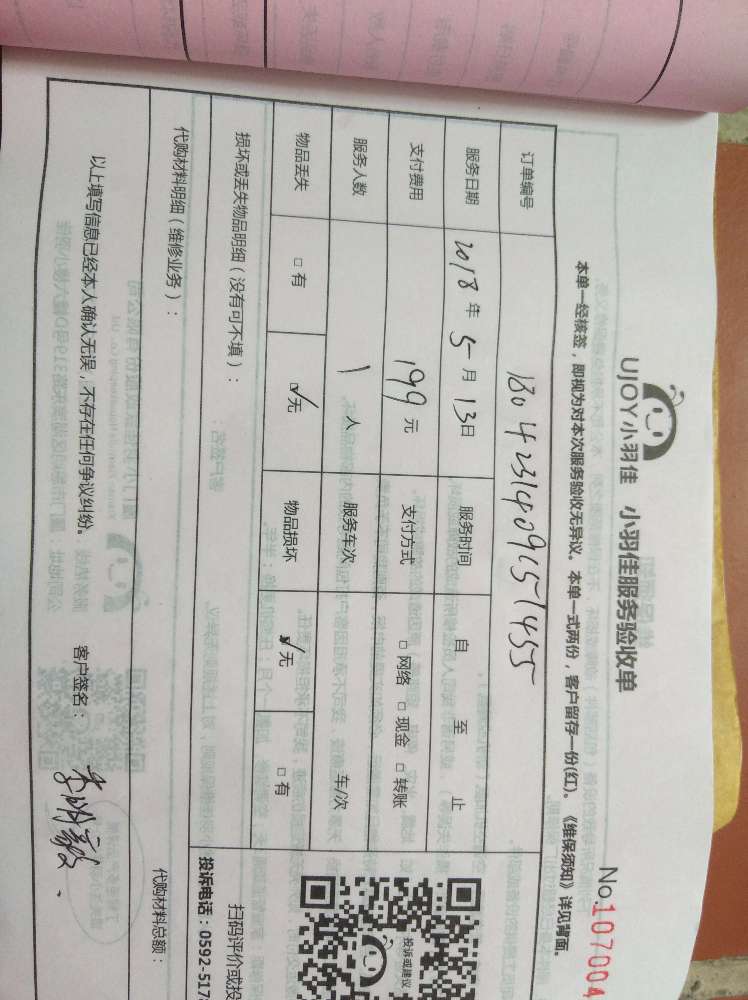 UJOY小羽佳 小羽佳服务验收单
No.107004
本单一经核签，即视为对本次服务验收无异议。本单一式两份，客户留存一份(红)。《维保须知》详见背面。
订单编号 1804231409151455
服务日期 2018年5月13日 服务时间 自 至 止
支付费用 199元 支付方式 □网络 □现金 □转账
服务人数 1人 服务车次 车/次
物品丢失 □有 ☑无 物品损坏 ☑无 □有
投诉或建议
损坏或丢失物品明细（没有可不填）：
扫码评价或投
投诉电话：0592-517
代购材料明细（维修业务）： 代购材料总额：
以上填写信息已经本人确认无误，不存在任何争议纠纷。 客户签名：